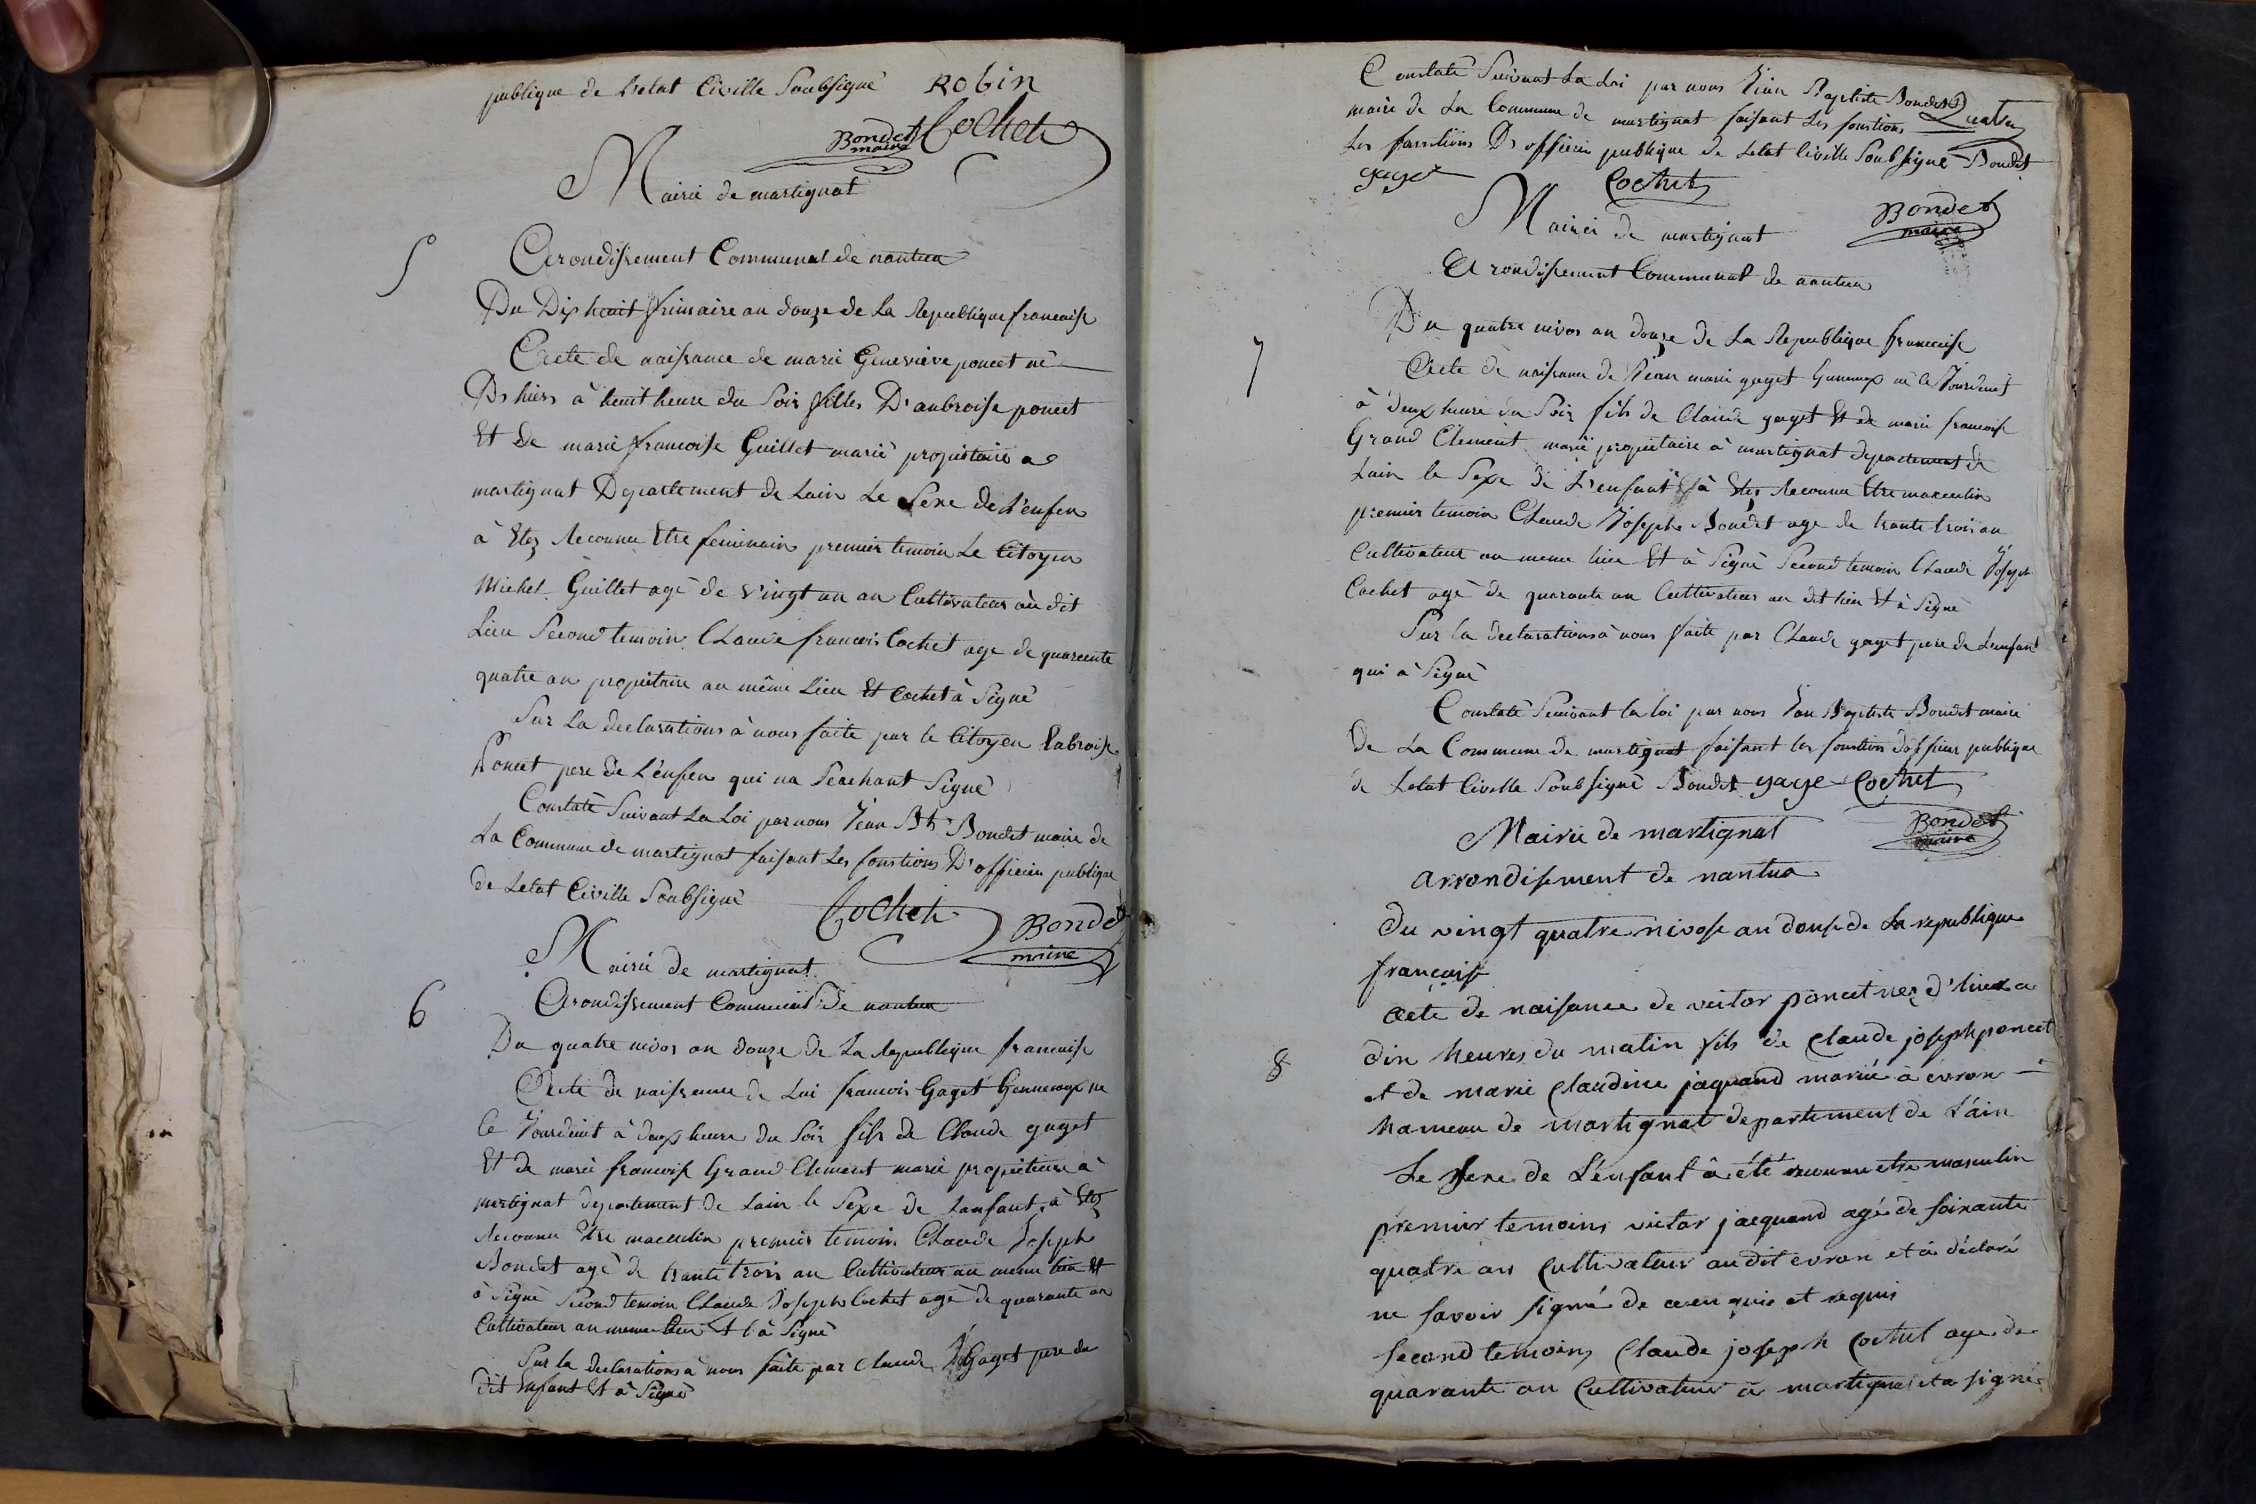 publique de Letat Civille Soubsigné Robin
Bondet Cochet
maire
Mairie de martignat
5
Arondissement Communal de nantua
Du Dix huit frimaire an douze de La Republique francaise
Acte de naissance de marie Genevieve poncet né
Ds hiers à huit heure du Soir filles D'anbroise poncet
Et de marie francoise Guillet marié propietaire a
martignat Departement de Lain Le Sexe de L'enfen
à Etez Reconnu Etre feminain premier temoin Le Citoyen
Michel Guillet agé de vingt un an Cultivateur au dit
Lieu Second temoin Claude francois Cochet age de quarente
quatre an propietaire au même Lieu Et Cochet à Signé
Sur La declarations à nous faite par le Citoyen Enbroise
Poncet pere de L'enfen qui na Seachant Signé
Constaté Suivant La Loi par nous Jean Bte Bondet maire de
La Commune de martignat faisant Les fonctions D'officier publique
de Letat Civille Soubsigné Cochet Bondet
maire
Mairie de martignat
6
Arondissement Communal de nantua
Du quatre nivos an douze de La Republique francaise
Acte de naissance de Lui francois Gaget Gemmeaux né
Ce Jourduit à deux heure du Soir fils de Claude gaget
Et de marie francoise Grand Clement marié propietaire à
martignat departement de Lain le Sexe de Lanfant à Etez
Reconnu Etre maculin premier temoin Claude Joseph
Bondet agé de trante trois an Cultivateur au meme lieu Et
à Signé Second temoin Claude Joseph Cochet agé de quarante an
Cultivateur au meme lieu Et à Signé
Sur la declarations à nous faite par Claude Gaget pere du
dit Enfant Et à Signé
Constaté Suivant La Loi par nous Jean Baptiste Bondet
maire de La Commune de martignat faisant Les fonctions
Les fonctions D'officier publique de Letat Civille Soubsigné Bondet
gaget Cochet
Bondet
maire
Mairie de martignat
Arondissement Communal de nantua
7
Du quatre nivos an douze de La Republique francaise
Acte de naissance de Jean marie gaget Gumeaux né le Jourduit
à deux heure du Soir fils de Claude gaget Et de marie francoise
Grand Clement marié propietaire à martignat departement de
Lain le Sexe de L'enfant à Etez Reconnu Etre maculin
premier temoin Claude Joseph Bondet age de trante trois an
Cultivateur au meme lieu Et à Signé Second temoin Claude Joseph
Cochet agé de quarante an Cultivateur au dit lieu Et à Signé
Sur la declarations à nous faite par Claude gaget pere de Lenfant
qui à Signé
Constaté Suivant la loi par nous Jean Baptiste Bondet maire
de La Commune de martignat faisant les fonction d'officier publique
de Letat Civille Soubsigné Bondet gage Cochet
Bondet
maire
Mairie de martignat
arrondisement de nantua
du vingt quatre nivose an douse de La republique
francaise
acte de naisance de victor poncet nez d'hiers a
8
dix heures du matin fils de Claude joseph poncet
et de marie Claudine jaquand marié à evron
hameau de martignat departement de L'ain
Le sexe de L'enfant à été reconnu etre masculin
premier temoins victor jacquand agé de soixante
quatre ans Cultivateur audit evron et à déclaré
ne savoir signé de ce enquis et requis
second temoins Claude joseph Cochet age de
quarante an Cultivateur à martignat et a signé